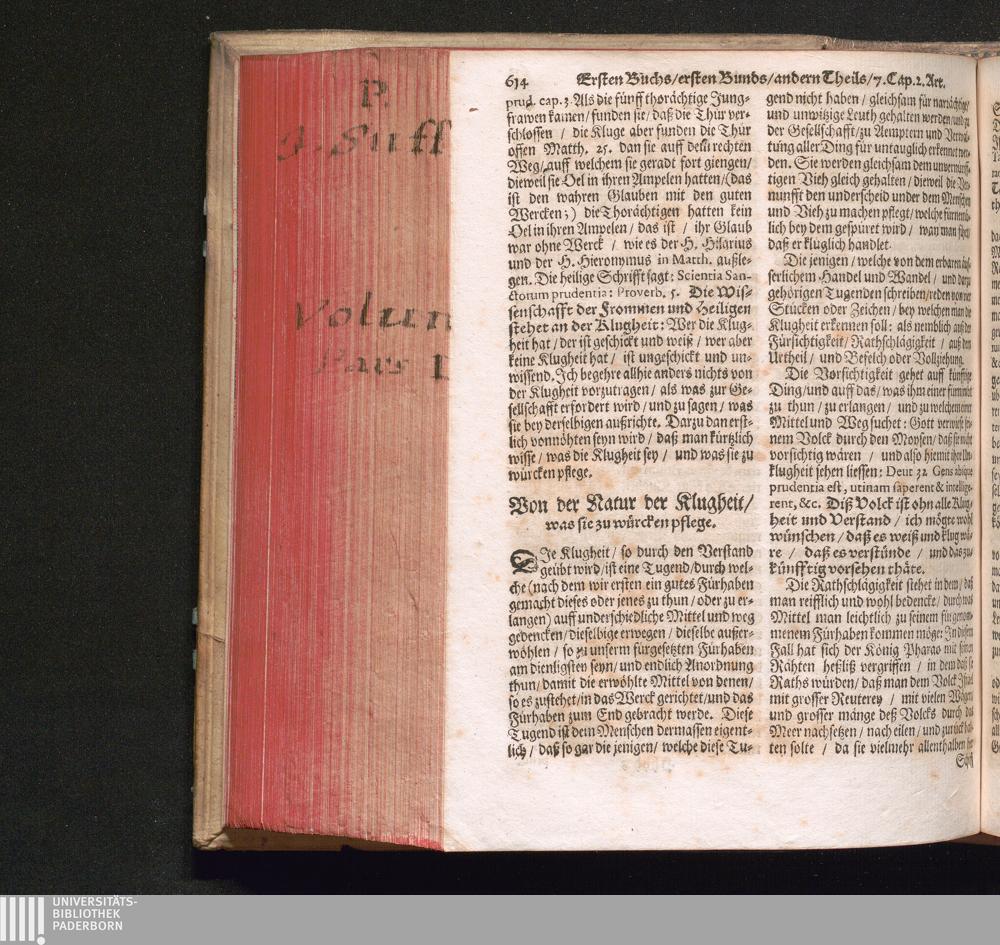 P.
J. Suff
Volum
Pars I
614 Ersten Buchs/ersten Bunds/andern Theils/7. Cap. 2. Art.
prud. cap. 3. Als die fünff thorächtige Jung-
frawen kamen/funden sie/daß die Thür ver-
schlossen / die Kluge aber funden die Thür
offen Matth. 25. dan sie auff dem rechten
Weg/auff welchem sie geradt fort giengen/
dieweil sie Oel in ihren Ampelen hatten/(das
ist den wahren Glauben mit den guten
Wercken;) die Thorächtigen hatten kein
Oel in ihren Ampelen/ das ist / ihr Glaub
war ohne Werck / wie es der H. Hilarius
und der H. Hieronymus in Matth. außle-
gen. Die heilige Schrifft sagt: Scientia San-
ctorum prudentia: Proverb. 5. Die Wis-
senschafft der Frommen und Heiligen
stehet an der Klugheit: Wer die Klug-
heit hat/ der ist geschickt und weiß/ wer aber
keine Klugheit hat / ist ungeschickt und un-
wissend. Ich begehre allhie anders nichts von
der Klugheit vorzutragen / als was zur Ge-
sellschafft erfordert wird/ und zu sagen / was
sie bey derselbigen außrichte. Darzu dan erst-
lich vonnöhten seyn wird / daß man kürtzlich
wisse/ was die Klugheit sey / und was sie zu
würcken pflege.
Von der Natur der Klugheit/
was sie zu würcken pflege.
DIe Klugheit/ so durch den Verstand
geübt wird/ist eine Tugend/durch wel-
che (nach dem wir ersten ein gutes Fürhaben
gemacht dieses oder jenes zu thun/ oder zu er-
langen) auff underschiedliche Mittel und weg
gedencken/dieselbige erwegen/ dieselbe außer-
wöhlen / so zu unserm fürgesetzten Fürhaben
am dienligsten seyn/ und endlich Anordnung
thun/ damit die erwöhlte Mittel von denen/
so es zustehet/in das Werck gerichtet/und das
Fürhaben zum End gebracht werde. Diese
Tugend ist dem Menschen dermassen eigent-
lich/ daß so gar die jenigen/ welche diese Tu-
gend nicht haben/ gleichsam für narrächtige/
und unwitzige Leuth gehalten werden/und zu
der Gesellschafft/zu Aemptern und Verwal-
tung aller Ding für untauglich erkennet wer-
den. Sie werden gleichsam dem unvernünff-
tigen Vieh gleich gehalten/ dieweil die Ver-
nunfft den underscheid under dem Menschen
und Vieh zu machen pflegt/ welche fürnem-
lich bey dem gespüret wird /
daß er klüglich handlet
Die jenigen/ welche von dem erbaren
serlichem Handel und Wandel/ und
gehörigen Tugenden schreiben/reden von
Stücken oder Zeichen/ bey welchen man die
Klugheit erkennen soll: als nemblich auß der
Fürsichtigkeit/ Rathschlägigkeit / auß dem
Urtheil/ und Befelch oder Vollziehung.
Die Vorsichtigkeit gehet auff künfftige
Ding/und auff das/ was ihm einer fürnimmt
zu thun / zu erlangen / und zu welchem einer
Mittel und Weg suchet: Gott verwise sei-
nem Volck durch den Moysen/ daß sie nicht
vorsichtig wären / und also hiemit ihre Un-
klugheit sehen liessen: Deut 32. Gens absque
prudentia est, utinam saperent & intellige-
rent, &c. Diß Volck ist ohn alle Klug-
heit und Verstand / ich mögte wohl
wünschen / daß es weiß und klug wä-
re / daß es verstünde / und das zu-
künfftig vorsehen thäte.
Die Rathschlägigkeit stehet in dem/ daß
man reifflich und wohl bedencke/ durch was
Mittel man leichtlich zu seinem fürgenom-
menem Fürhaben kommen möge: In diesem
Fall hat sich der König Pharao mit seinen
Rähten heßliß vergriffen / in dem daß sie
Raths würden/ daß man dem Volck Israel
mit grosser Reuterey / mit vielen Wägen
und grosser mänge deß Volcks durch das
Meer nachsetzen / nach eilen/ und zurück hal-
ten solte / da sie vielmehr allenthalben
UNIVERSITÄTS-
BIBLIOTHEK
PADERBORN